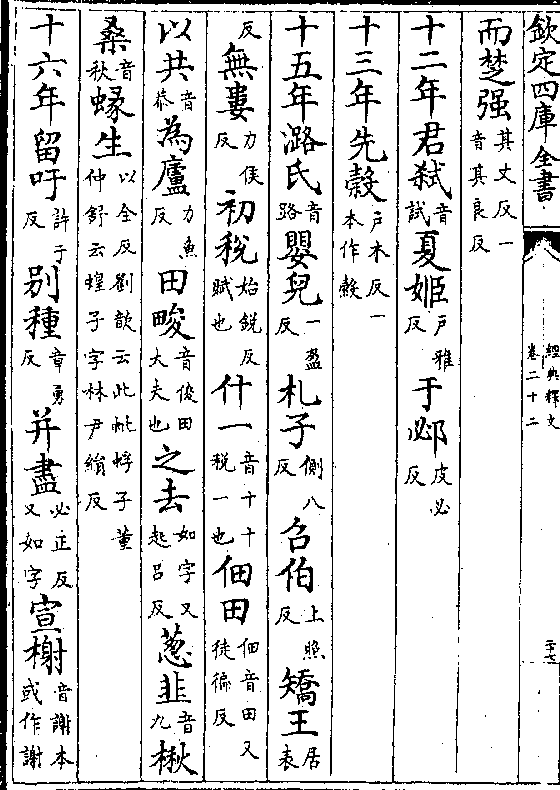 欽定四庫全書 經典釋文卷二十二 二十七
而楚强其丈反一音其良反
十二年君弑音試夏姬户雅反于邲皮必反
十三年先縠户木反一本作㝅
十五年潞氏音路嬰兒一盈反札子側八反召伯上照反矯王居表
反無婁力侯反初稅始銳反賦也什一音十十稅一也佃田佃音田又徒徧反
以共音恭為廬力魚反田畯音俊田大夫也之去如字又起呂反葱韭音九楸
桑音秋蝝生以全反劉歆云此蚍蜉子董仲舒云蝗子字林尹絹反
十六年留吁許于反别種章勇反并盡必正反又如字宣榭音謝本或作謝